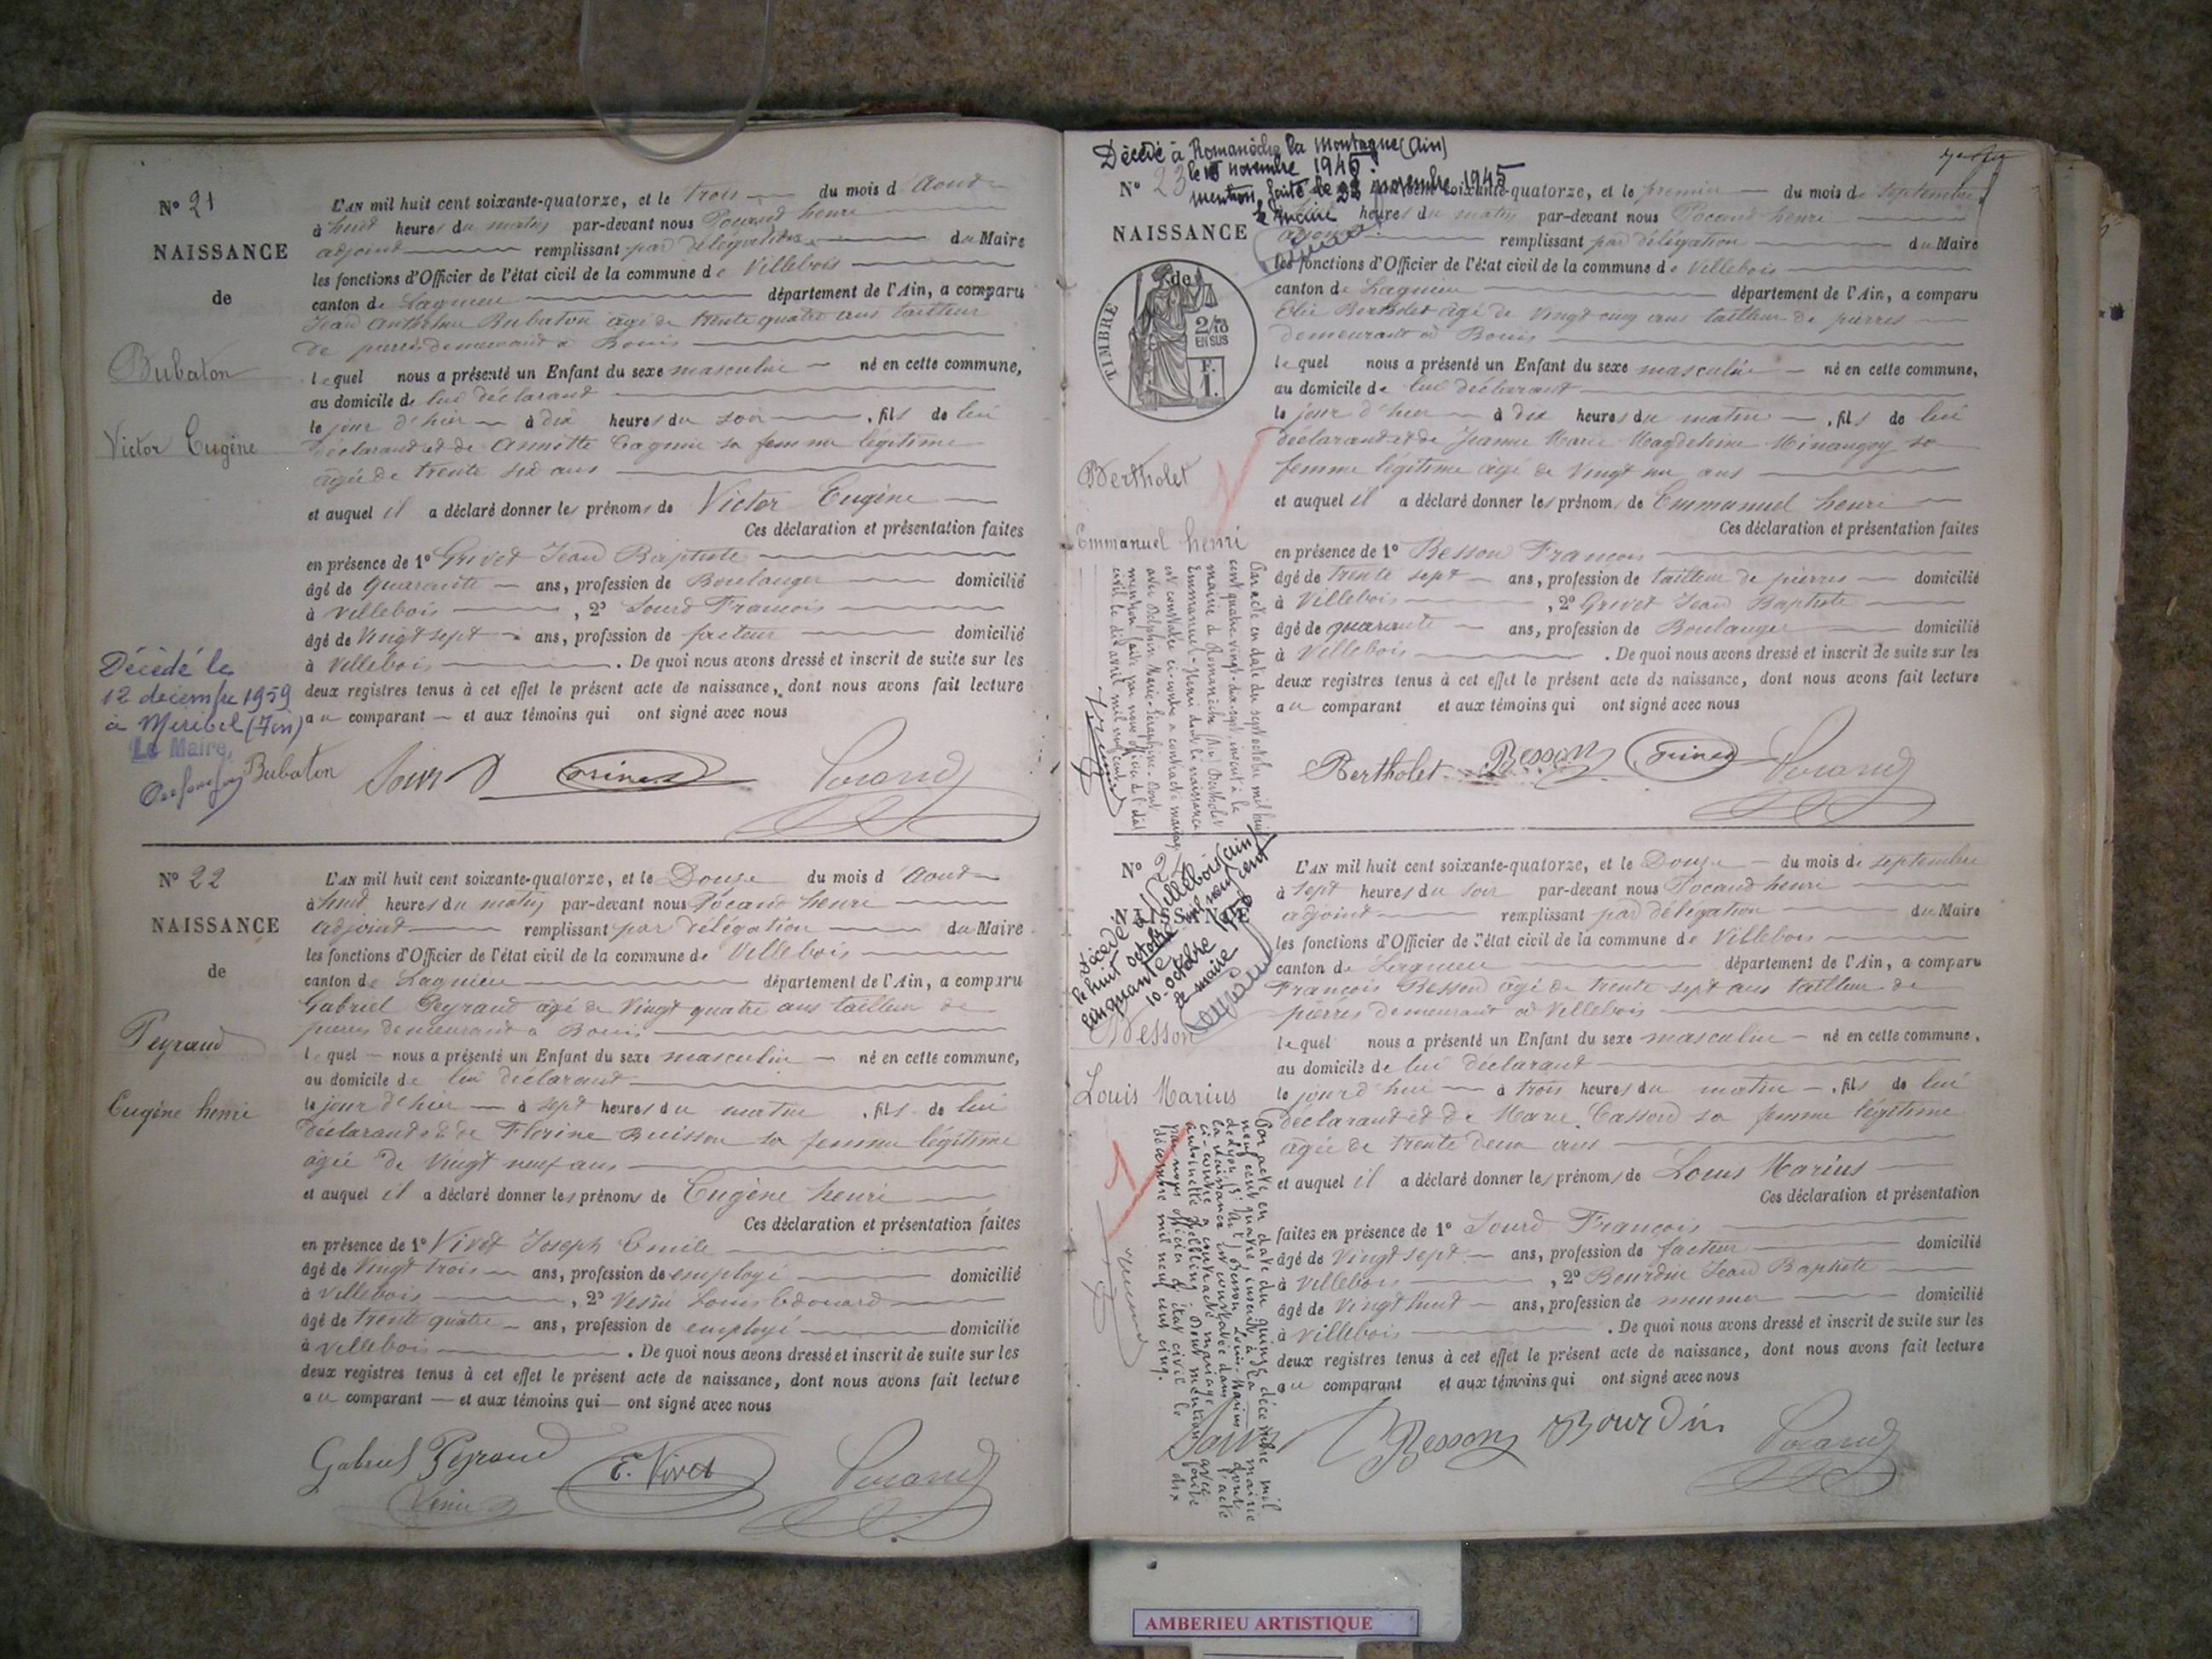 N° 21
NAISSANCE
de
Bubaton
Victor Eugène
L'AN mil huit cent soixante-quatorze, et le Trois du mois d'Aout
à huit heures du matin par-devant nous Pocard henri
adjoint remplissant par délégation du Maire
les fonctions d'Officier de l'état civil de la commune de Villebois
canton de Lagnieu département de l'Ain, a comparu
Jean Bubaton âgé de trente quatre ans tailleur
de pierres demeurant à Bouis
lequel nous a présenté un Enfant du sexe masculin né en cette commune,
au domicile de lui déclarant
le jour d'hier à dix heures du soir, fils de lui
déclarant et de Annette Cagnin sa femme légitime
âgée de trente six ans
et auquel il a déclaré donner les prénoms de Victor Eugène
Ces déclaration et présentation faites
en présence de 1° Grivet Jean Baptiste
âgé de quarante ans, profession de Boulanger domicilié
à Villebois, 2° Sourd François
âgé de vingt sept ans, profession de facteur domicilié
à Villebois. De quoi nous avons dressé et inscrit de suite sur les
deux registres tenus à cet effet le présent acte de naissance, dont nous avons fait lecture
au comparant et aux témoins qui ont signé avec nous
Décédé le
12 décembre 1959
à Miribel (Ain)
Le Maire,
Bubaton Sourd Pocard
N° 22
NAISSANCE
de
Peyraud
Eugène henri
L'AN mil huit cent soixante-quatorze, et le Douze du mois d'Aout
à huit heures du matin par-devant nous Pocard henri
adjoint remplissant par délégation du Maire
les fonctions d'Officier de l'état civil de la commune de Villebois
canton de Lagnieu département de l'Ain, a comparu
Gabriel Peyraud âgé de vingt quatre ans tailleur de
pierres demeurant à Bouis
lequel nous a présenté un Enfant du sexe masculin né en cette commune,
au domicile de lui déclarant
le jour d'hier à sept heures du matin, fils de lui
déclarant et de Florine Buisson sa femme légitime
âgée de vingt neuf ans
et auquel il a déclaré donner les prénoms de Eugène henri
Ces déclaration et présentation faites
en présence de 1° Vivet Joseph Emile
âgé de vingt trois ans, profession de employé domicilié
à Villebois, 2° Louis Edouard
âgé de trente quatre ans, profession de employé domicilié
à Villebois. De quoi nous avons dressé et inscrit de suite sur les
deux registres tenus à cet effet le présent acte de naissance, dont nous avons fait lecture
au comparant et aux témoins qui ont signé avec nous
Gabriel Peyraud E. Vivet Pocard
Décédé à Romanèche la Montagne (Ain)
le novembre 1945
mention faite le novembre 1945
le maire
N° 23
NAISSANCE
de
TIMBRE
2/10
EN SUS
F.
1.
Bertholet
Emmanuel henri
soixante-quatorze, et le premier du mois de septembre
heures du matin par-devant nous Pocard henri
adjoint remplissant par délégation du Maire
les fonctions d'Officier de l'état civil de la commune de Villebois
canton de Lagnieu département de l'Ain, a comparu
Elie Bertholet âgé de vingt cinq ans tailleur de pierres
demeurant à Bouis
lequel nous a présenté un Enfant du sexe masculin né en cette commune,
au domicile de lui déclarant
le jour d'hier à dix heures du matin, fils de lui
déclarant et de Jeanne Marie Magdeleine Minangoy sa
femme légitime âgé de vingt un ans
et auquel il a déclaré donner les prénoms de Emmanuel henri
Ces déclaration et présentation faites
en présence de 1° Besson François
âgé de trente sept ans, profession de tailleur de pierres domicilié
à Villebois, 2° Grivet Jean Baptiste
âgé de quarante ans, profession de Boulanger domicilié
à Villebois. De quoi nous avons dressé et inscrit de suite sur les
deux registres tenus à cet effet le présent acte de naissance, dont nous avons fait lecture
au comparant et aux témoins qui ont signé avec nous
Par acte en date du sept octobre mil huit
cent quatre-vingt-dix-sept, inscrit à la
mairie de Romanèche (Ain) Bertholet
Emmanuel-Henri dont la naissance
est constatée ci-contre a contracté mariage
avec Marie-Séraphine. Dont
mention faite par nous officier de l'état
civil le dix avril mil neuf cent
Bertholet Besson Pocard
N° 2
NAISSANCE
décédé à Villebois (Ain)
le huit octobre mil neuf cent
cinquante
10 octobre 1950
le maire
Besson
Louis Marius
L'AN mil huit cent soixante-quatorze, et le Douze du mois de septembre
à sept heures du soir par-devant nous Pocard henri
adjoint remplissant par délégation du Maire
les fonctions d'Officier de l'état civil de la commune de Villebois
canton de Lagnieu département de l'Ain, a comparu
François Besson âgé de trente sept ans tailleur de
pierres demeurant à Villebois
lequel nous a présenté un Enfant du sexe masculin né en cette commune,
au domicile de lui déclarant
le jourd'hui à trois heures du matin, fils de lui
déclarant et de Marie Casson sa femme légitime
âgée de trente deux ans
et auquel il a déclaré donner les prénoms de Louis Marius
Ces déclaration et présentation
faites en présence de 1° Sourd François
âgé de vingt sept ans, profession de facteur domicilié
à Villebois, 2° Bourdin Jean Baptiste
âgé de vingt huit ans, profession de meunier domicilié
à Villebois. De quoi nous avons dressé et inscrit de suite sur les
deux registres tenus à cet effet le présent acte de naissance, dont nous avons fait lecture
au comparant et aux témoins qui ont signé avec nous
Par acte en date du quinze décembre mil
neuf cent quatre, inscrit à la mairie
de Lyon (3e Art) Besson Louis-Marius dont
la naissance est constatée dans l'acte
ci-contre a contracté mariage avec
Antoinette Dont mention faite
par nous officier de l'état civil le dix
décembre mil neuf cent cinq.
Sourd Besson Bourdin Pocard
AMBERIEU ARTISTIQUE